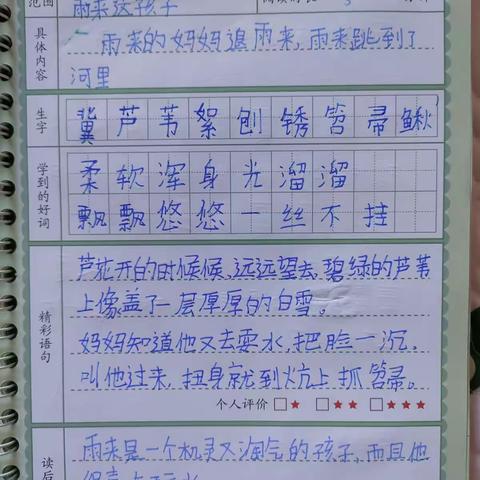 范围
雨来这孩子
具体内容
雨来的妈妈追雨来,雨来跳到了
河里
生字
冀芦苇絮刨锈笤帚鳅
学到的好词
柔软浑身光溜溜
飘飘悠悠一丝不挂
精彩语句
芦花开的时候候,远远望去,碧绿的芦苇
上像盖了一层厚厚的白雪。
妈妈知道他又去耍水,把脸一沉,
叫他过来,扭身就到炕上抓笤帚。
个人评价 □★ □★★ □★★★
读后
雨来是一个机灵又淘气的孩子,而且他